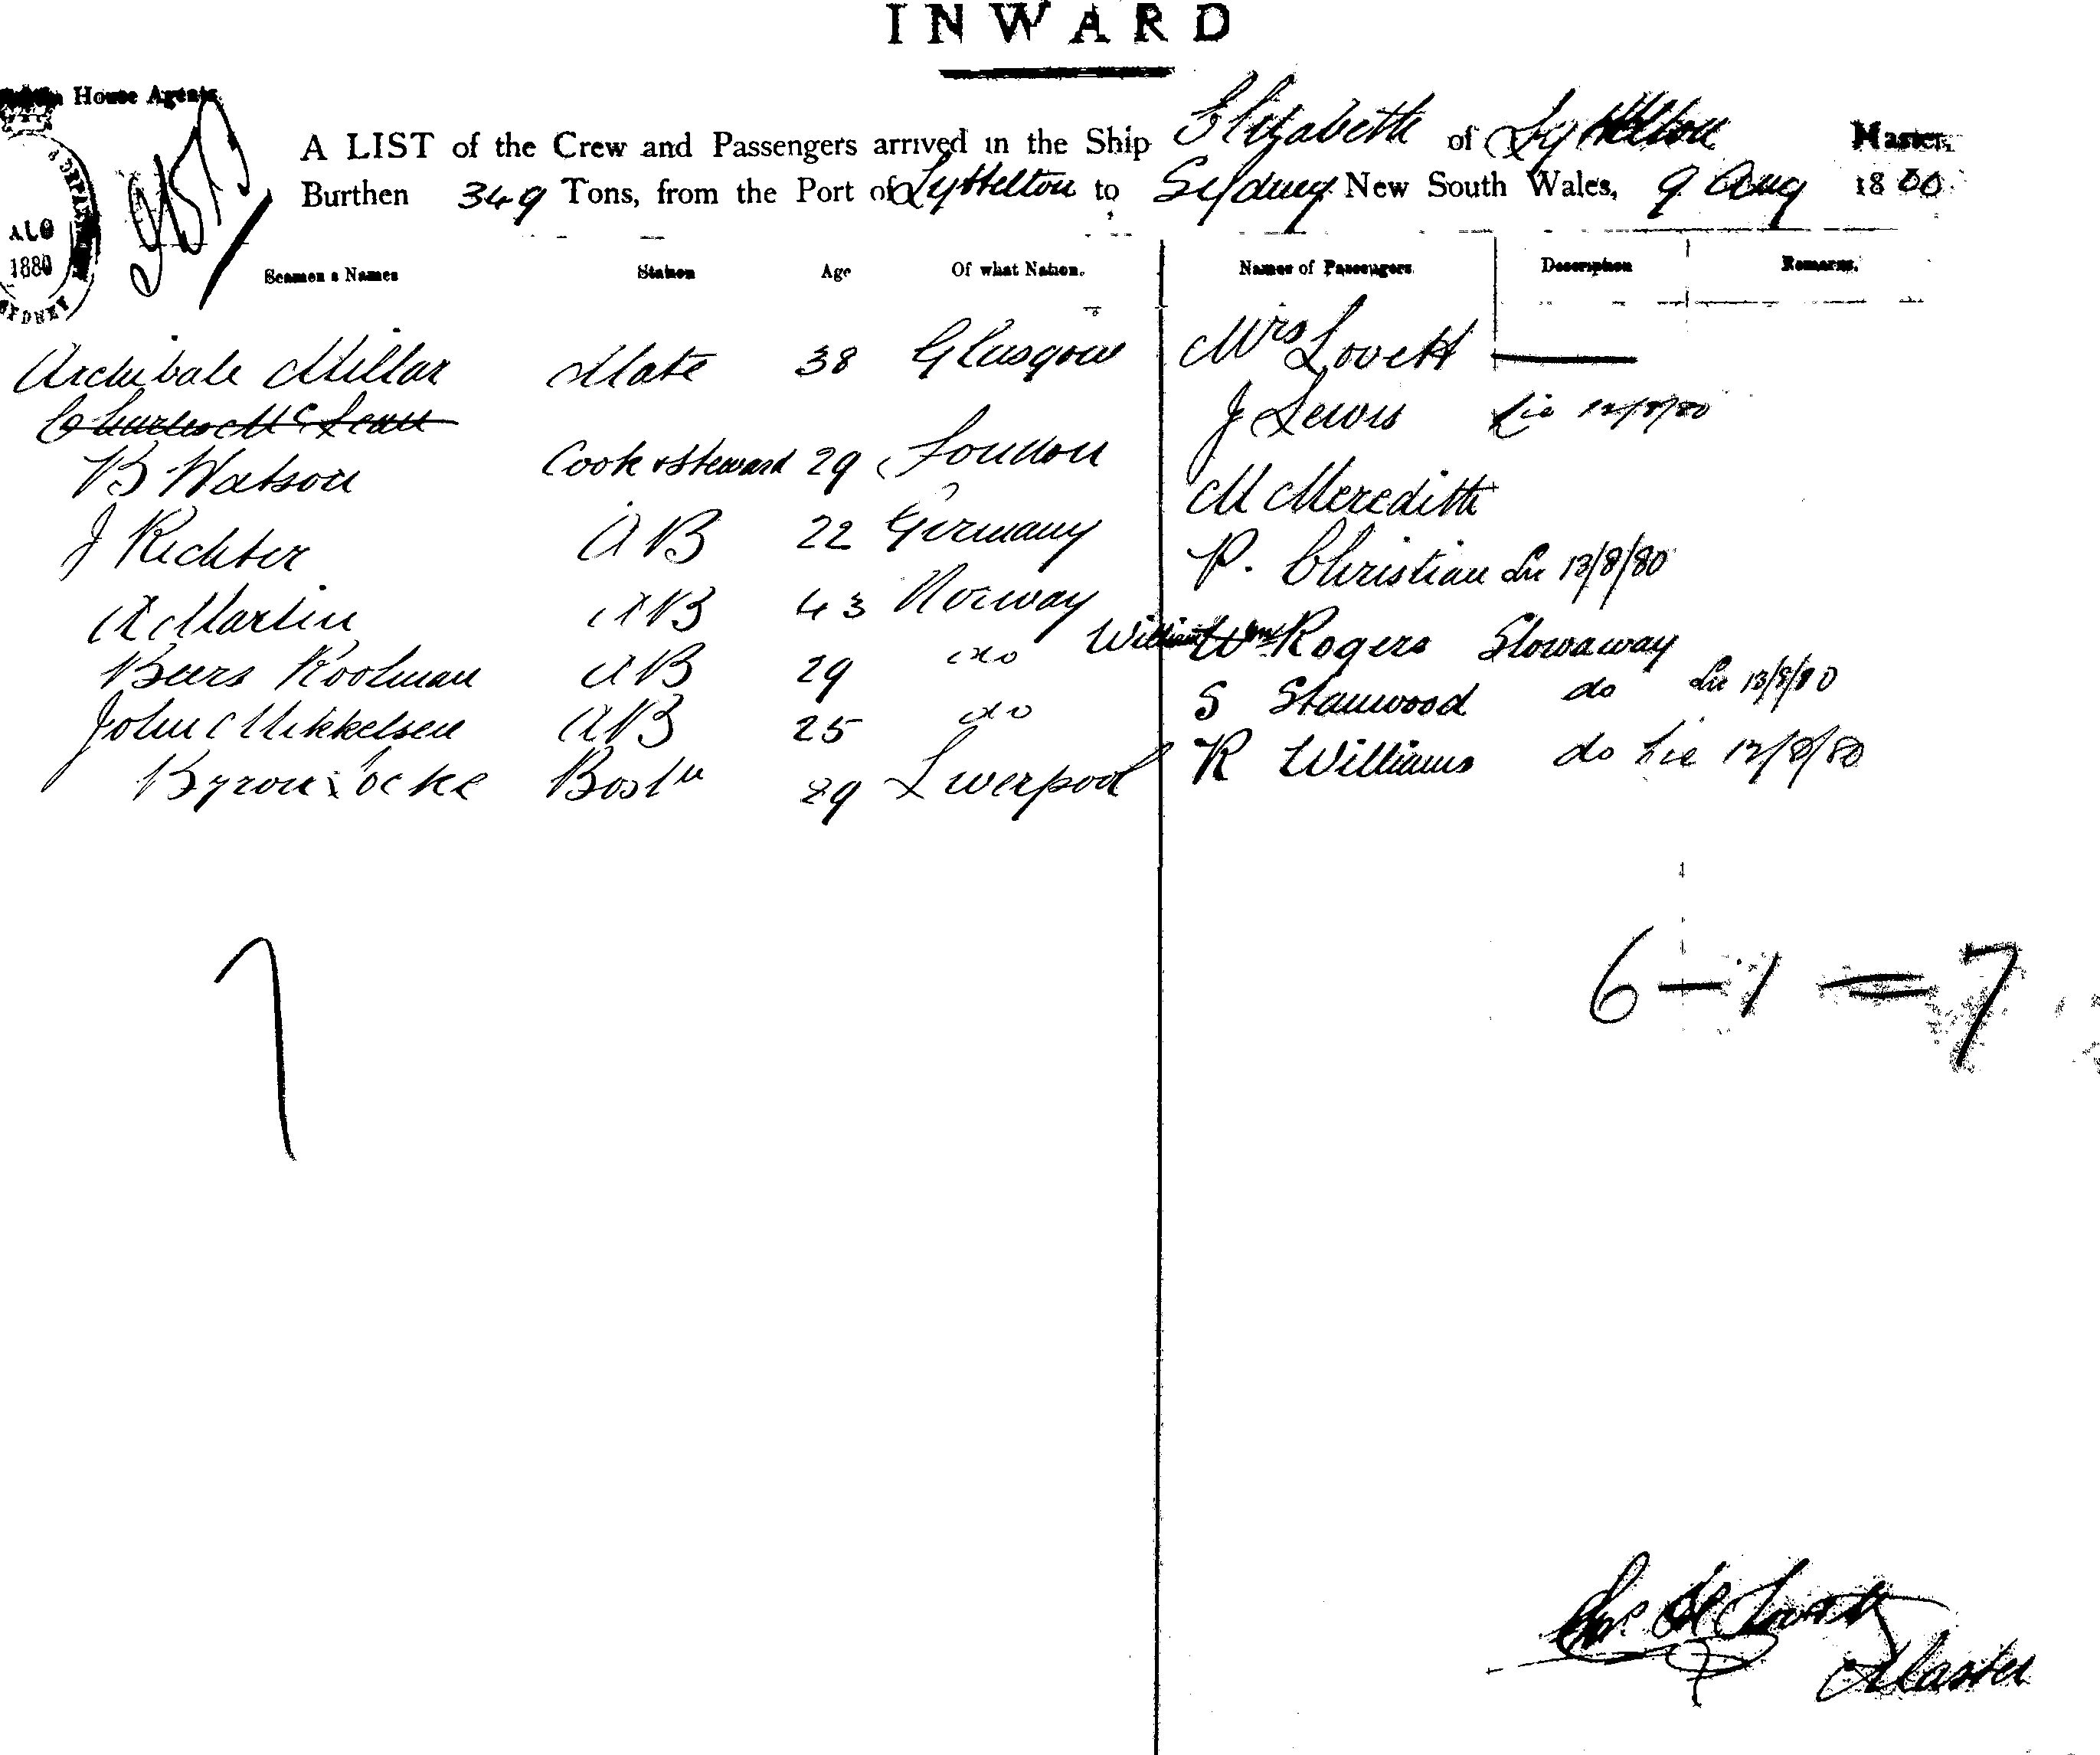 INWARD
House Agents
A LIST of the Crew and Passengers arrived in the Ship Elizabeth of Lyttelton Master,
Burthen 349 Tons, from the Port of Lyttelton to Sydney New South Wales, 9 Aug 1880
1880
SYDNEY
Seamen s Names Station Age Of what Nation. Names of Passengers Description Remarks.
Archibale Millar Mate 38 Glasgow Mrs Lovett
Charles McLean J Lewis Lie 12/8/80
B Watson Cook & Steward 29 London M Meredith
J Richter AB 22 Germany P. Christian Lie 13/8/80
A Martin AB 43 Norway William Wm Rogers Stowaway
Beers Koolman AB 29 do S Stanwood do Lie 13/8/80
John Mikkelsen AB 25 do R Williams do Lie 12/8/80
Byron Locke Bostn 29 Liverpool
7
6 – 1 = 7
Lovett
Master